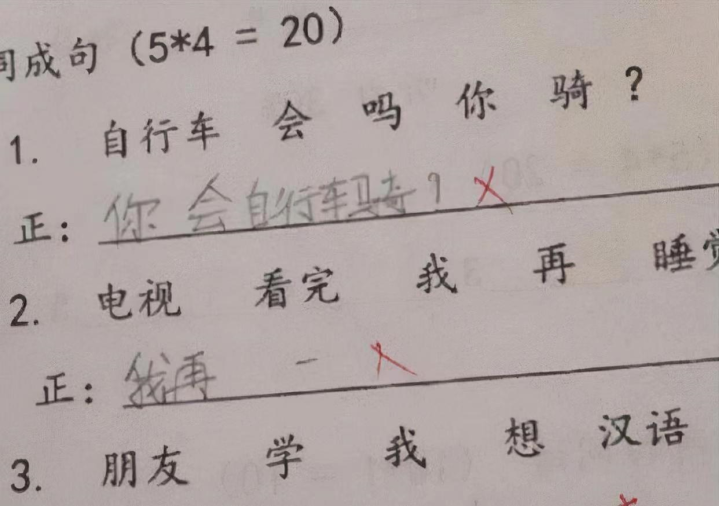 词成句 (5*4 = 20)
1. 自行车 会 吗 你 骑 ?
正: 你 会 自行车骑?
2. 电视 看完 我 再 睡觉
正: 我再 一
3. 朋友 学 我 想 汉语